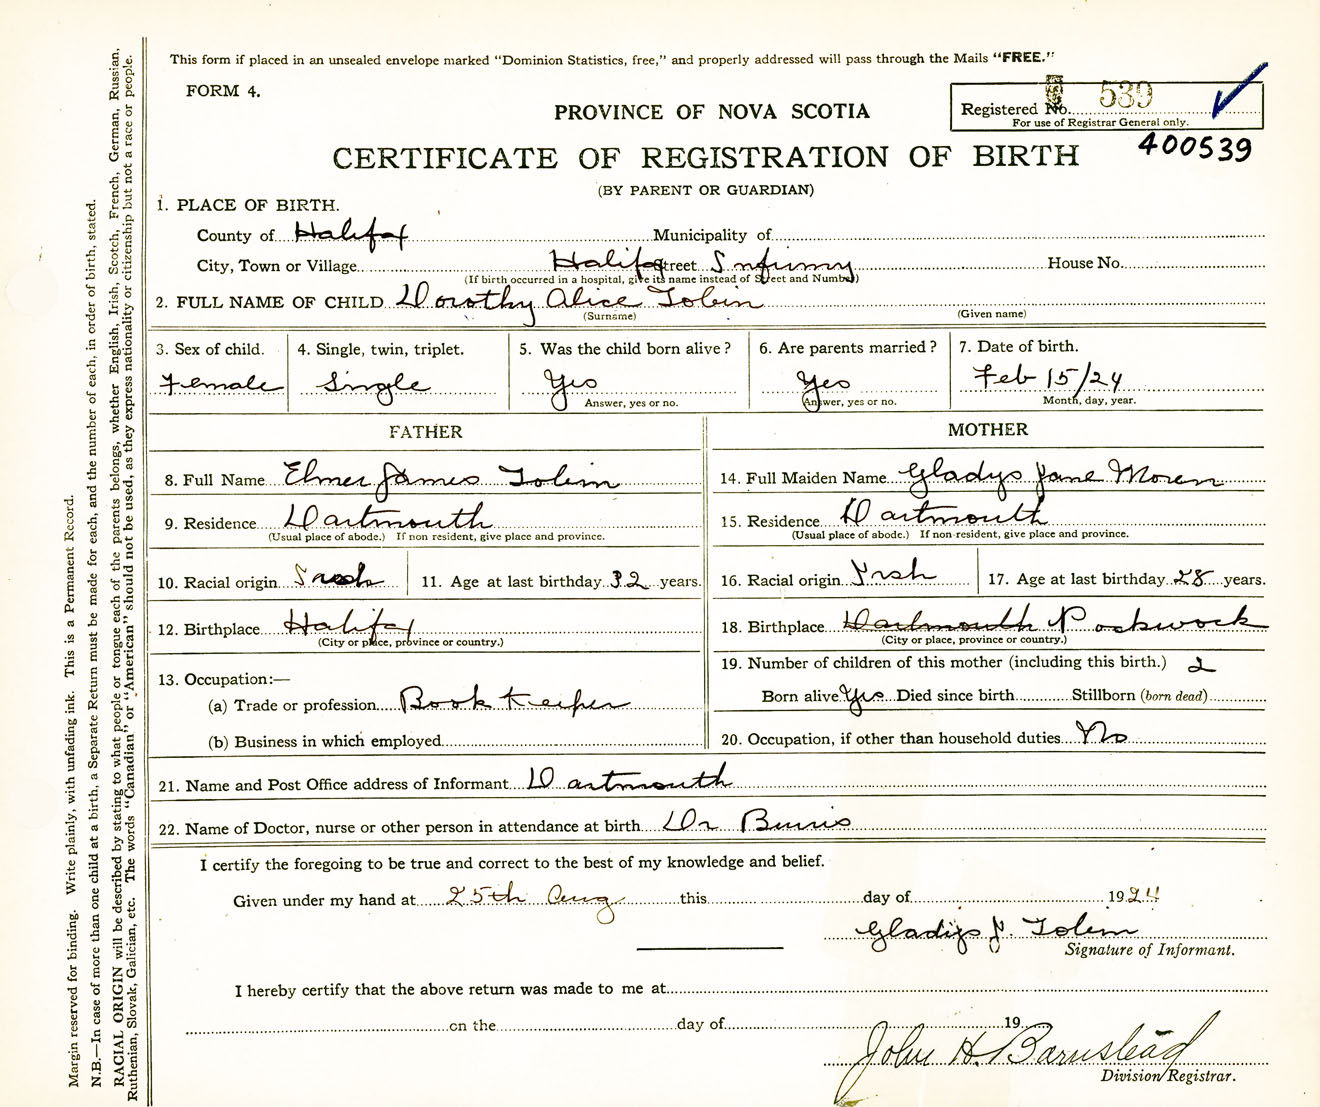 This form if placed in an unsealed envelope marked "Dominion Statistics, free," and properly addressed will pass through the Mails "FREE."
FORM 4.
Registered No. 539
For use of Registrar General only.
PROVINCE OF NOVA SCOTIA
400539
CERTIFICATE OF REGISTRATION OF BIRTH
(BY PARENT OR GUARDIAN)
1. PLACE OF BIRTH.
County of Halifax Municipality of
City, Town or Village Halifax Street Infirmy House No.
(If birth occurred in a hospital, give its name instead of Street and Number)
2. FULL NAME OF CHILD Dorothy Alice Tobin
(Surname) (Given name)
3. Sex of child. 4. Single, twin, triplet. 5. Was the child born alive? 6. Are parents married? 7. Date of birth.
Female Single Yes Yes Feb 15/24
Answer, yes or no. Answer, yes or no. Month, day, year.
FATHER MOTHER
8. Full Name Elmer James Tobin 14. Full Maiden Name Gladys Jane Moren
9. Residence Dartmouth 15. Residence Dartmouth
(Usual place of abode.) If non resident, give place and province. (Usual place of abode.) If non-resident, give place and province.
10. Racial origin 11. Age at last birthday 32 years. 16. Racial origin Irsh 17. Age at last birthday 28 years.
12. Birthplace Halifax 18. Birthplace Dartmouth Pockwock
(City or place, province or country.) (City or place, province or country.)
13. Occupation:— 19. Number of children of this mother (including this birth.) 2
(a) Trade or profession Book Keeper Born alive Yes Died since birth Stillborn (born dead)
(b) Business in which employed 20. Occupation, if other than household duties No
21. Name and Post Office address of Informant Dartmouth
22. Name of Doctor, nurse or other person in attendance at birth Dr
I certify the foregoing to be true and correct to the best of my knowledge and belief.
Given under my hand at 25th Aug this day of 1924
Gladys J. Tobin
Signature of Informant.
I hereby certify that the above return was made to me at
on the day of 19
John H. Barnstead
Division Registrar.
Margin reserved for binding. Write plainly, with unfading ink. This is a Permanent Record.
N.B.—In case of more than one child at a birth, a Separate Return must be made for each, and the number of each, in order of birth, stated.
RACIAL ORIGIN will be described by stating to what people or tongue each of the parents belongs, whether English, Irish, Scotch, French, German, Russian,
Ruthenian, Slovak, Galician, etc. The words "Canadian" or "American" should not be used, as they express nationality or citizenship but not a race or people.